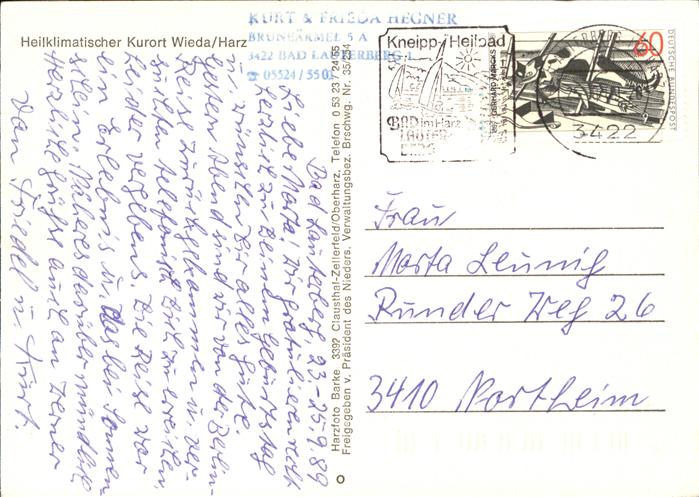 Heilklimatischer Kurort Wieda/Harz
KURT & FRIEDA HEGNER
BRUNEÄRMEL 5 A
3422 BAD LAUTERBERG 1
☎ 05524 / 55 01
Kneipp-Heilbad
BAD im Harz
LAUTER-
BERG
3422
60
DEUTSCHE BUNDESPOST
Bad Lauterberg 23.-25.9.89
Liebe Marta! Wir gratulieren recht
herzlich zu Deinem Geburtstag
u. wünschen Dir alles Gute.
Gestern Abend sind wir von der Berlin-
Reise zurückgekommen u. ver-
suchte telefonisch Dich zu erreichen.
Leider vergebens. Die Reise war
ein Erlebnis u. das bei Sonnen-
schein. Näheres darüber mündlich
Herzliche Grüße auch an Werner
Von Friedel u. Kurt.
Harzfoto Barke 3392 Clausthal-Zellerfeld/Oberharz, Telefon 0 53 23
Freigegeben v. Präsident des Nieders. Verwaltungsbez. Brschwg. Nr. 35/
Frau
Marta Leunig
Runder Weg 26
3410 Northeim